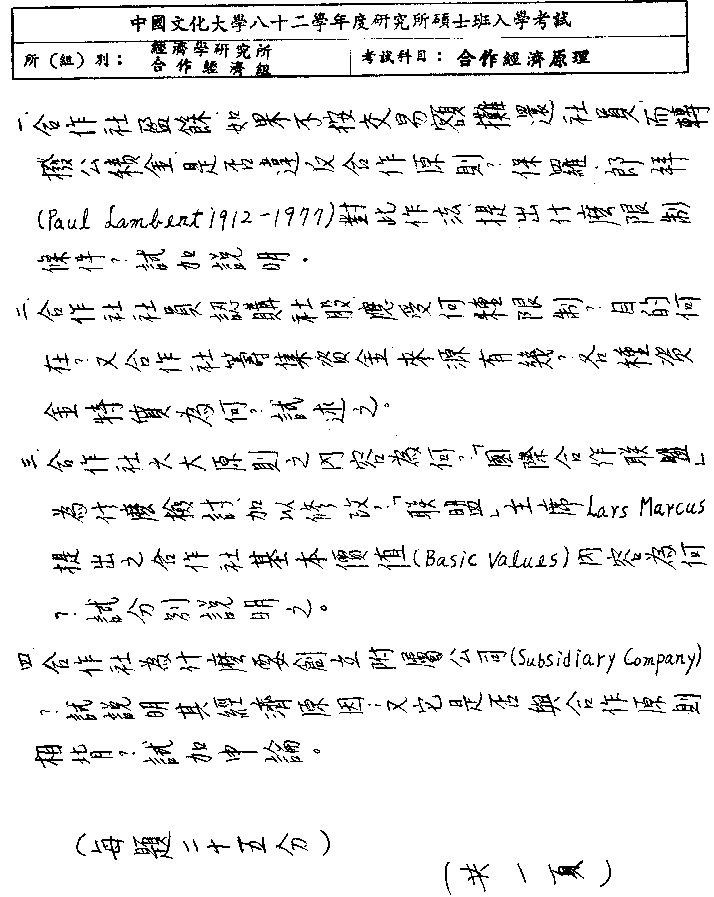 中國文化大學八十二學年度研究所碩士班入學考試
所（組）別： 經濟學研究所 合作經濟組 考試科目： 合作經濟原理
一合作社盈餘如果不按交易額攤還社員而轉
撥公積金是否違反合作原則？保羅．郎拜
(Paul Lambert 1912-1977)對此作法提出什麼限制
條件？試加說明．
二合作社社員認購社股應受何種限制？目的何
在？又合作社籌集資金來源有幾？各種資
金特質為何？試述之。
三合作社六大原則之內容為何？「國際合作联盟」
為什麼檢討加以修改？「联盟」主席Lars Marcus
提出之合作社基本價值(Basic Values)內容為何
？試分別說明之。
四合作社為什麼要創立附屬公司(Subsidiary Company)
？試說明其經濟原因；又它是否與合作原則
相背？試加申論。
（每題二十五分）
（共一頁）